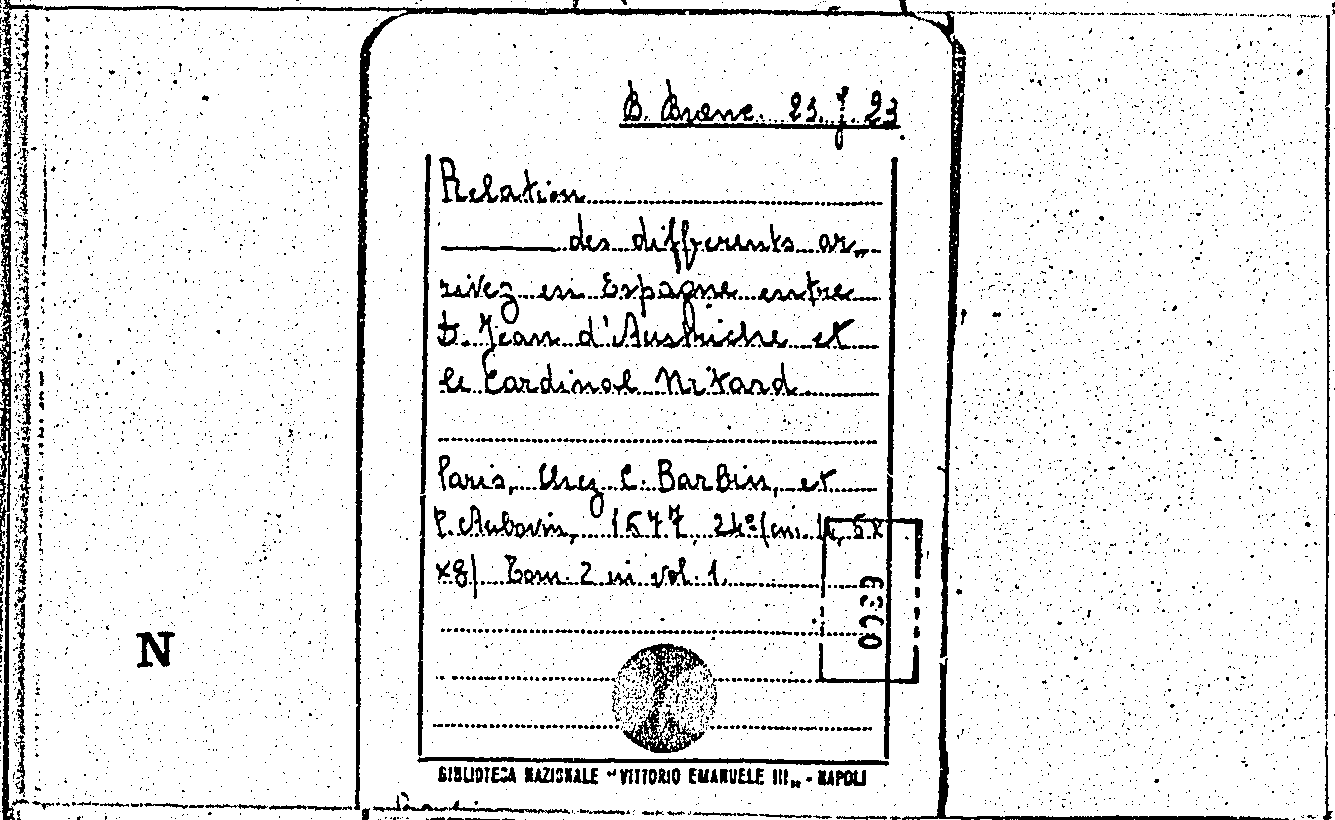 B. Branc. 23. J. 23
Relation
des differents ar„
rivez en Espagne entre
D. Jean d'Austriche et
le Cardinal Nitard.
Paris, Chez C. Barbin, et
P. Aubovin, 1677, 24º (cm. 14,5x
x8) Tom. 2 in vol. 1.
0039
N
BIBLIOTECA NAZIONALE "VITTORIO EMANUELE III„ - NAPOLI